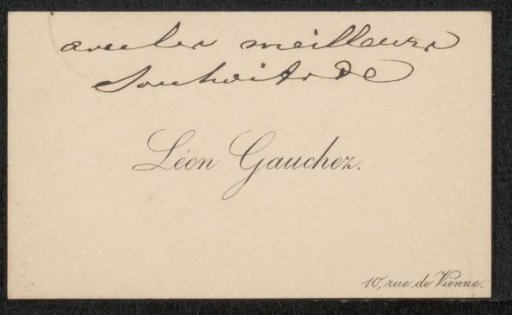 avec les meilleurs
souhaits de
Léon Gauchez.
10, rue de Vienne.